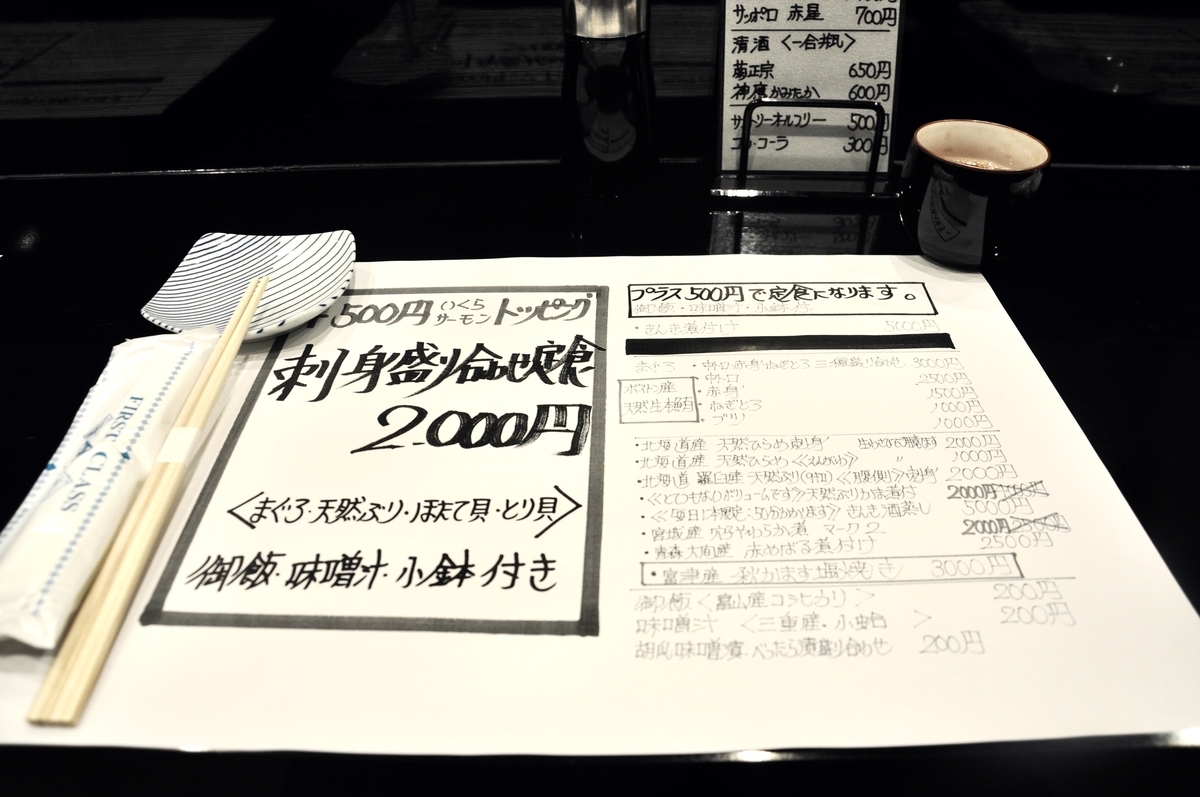 サッポロ 赤星 700円
清酒 <一合瓶>
菊正宗 650円
神鷹かみたか 600円
サントリーオールフリー 500円
コカ・コーラ 300円
FIRST CLASS
500円 いくら サーモン トッピング
刺身盛り合わせ定食
2.000円
<まぐろ・天然ぶり・ほたて貝・とり貝>
御飯・味噌汁・小鉢付き
プラス500円で定食になります。
御飯・味噌汁・小鉢付
・きんき煮付け 5000円
まぐろ ・中トロ・赤身・ねぎとろ 三種盛り合わせ 3000円
ボストン産 天然生本鮪
・中トロ 2500円
・赤身 1500円
・ねぎとろ 1000円
・ブツ 1000円
・北海道産 天然ひらめ刺身 2000円
・北海道産 天然ひらめ<<えんがわ>> 〃 1000円
・北海道 羅臼産 天然ぶり <<腹側>>刺身 2000円
・<<とてもボリュームです>>天然ぶりかま煮付 2000円
・きんき酒蒸し 5000円
・宮城産 穴子やわらか煮 マーク2 2000円
・青森大間産 赤めばる煮付け 2500円
・富津産 秋かます塩焼き 3000円
御飯<富山産コシヒカリ> 200円
味噌汁 <三重産・小蛤> 200円
胡瓜味噌漬・べったら漬盛り合わせ 200円